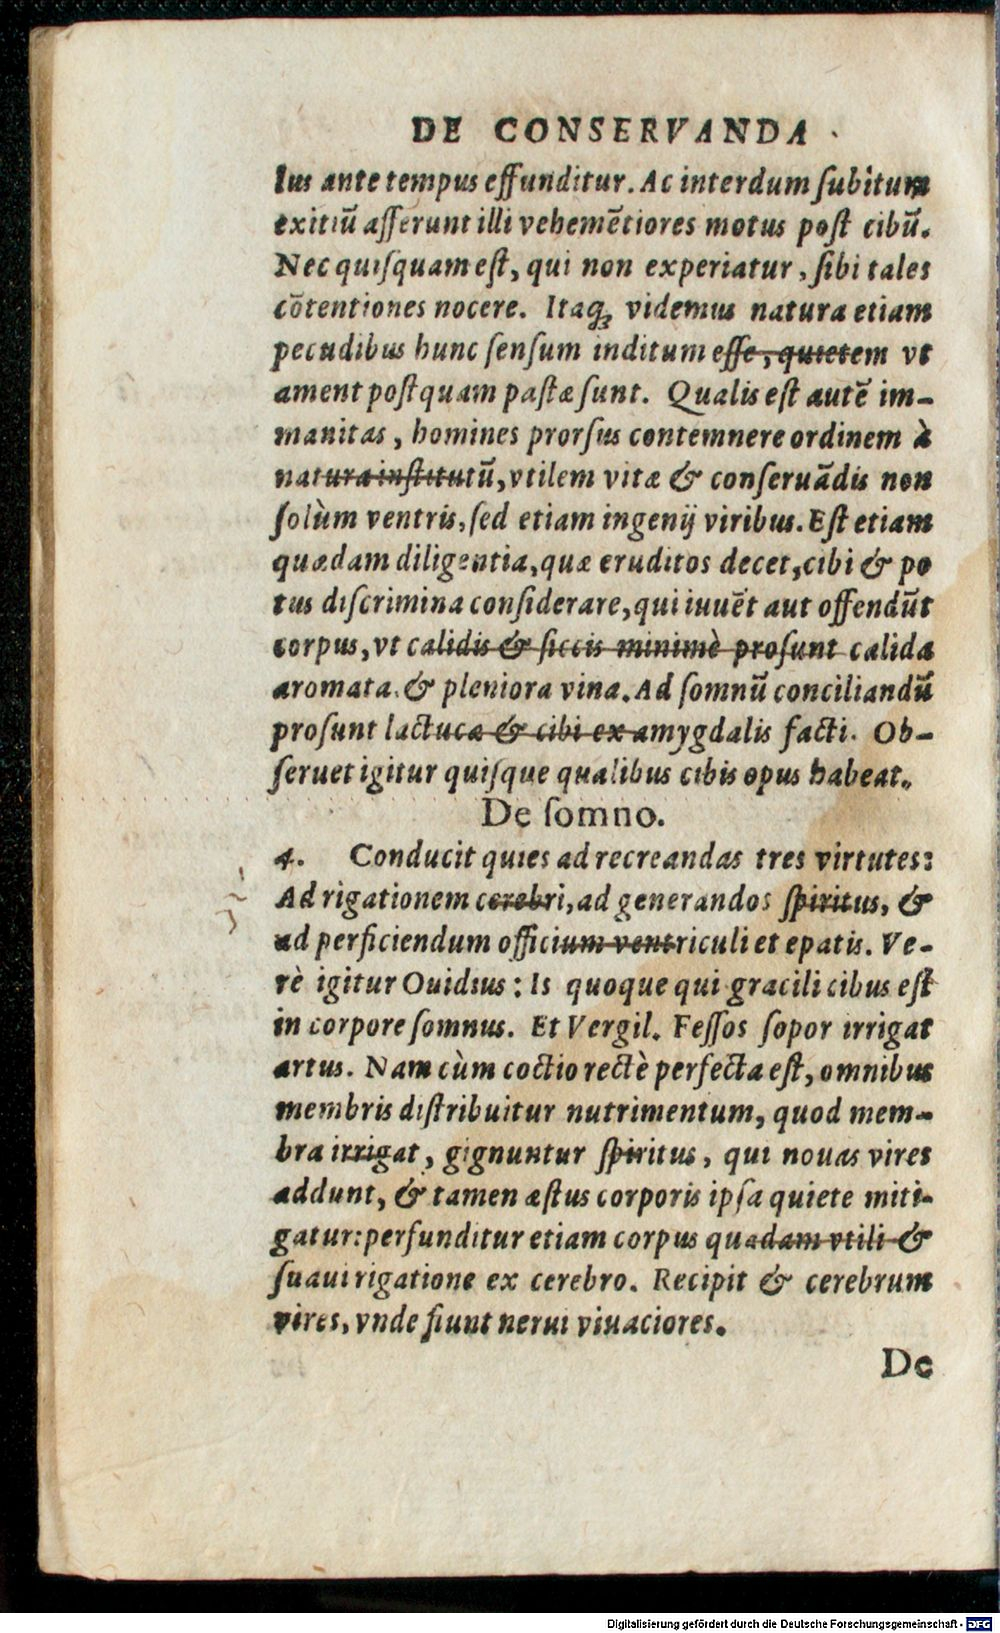 DE CONSERVANDA
lus ante tempus effunditur. Ac interdum subitum
exitiũ afferunt illi vehemẽtiores motus post cibũ.
Nec quisquam est, qui non experiatur, sibi tales
cõtentiones nocere. Itaq; videmus natura etiam
pecudibus hunc sensum inditum esse, quietem vt
ament postquam pastæ sunt. Qualis est autẽ im-
manitas, homines prorsus contemnere ordinem à
natura institutũ, vtilem vitæ & conseruãdis non
solùm ventris, sed etiam ingenij viribus. Est etiam
quædam diligentia, quæ eruditos decet, cibi & po
tus discrimina considerare, qui iuuẽt aut offendũt
corpus, vt calidis & siccis minimè prosunt calida
aromata. & pleniora vina. Ad somnũ conciliandũ
prosunt lactucæ & cibi ex amygdalis facti. Ob-
seruet igitur quisque qualibus cibis opus habeat.
De somno.
4. Conducit quies ad recreandas tres virtutes:
Ad rigationem cerebri, ad generandos spiritus, &
ad perficiendum officium ventriculi et epatis. Ve-
rè igitur Ouidius: Is quoque qui gracili cibus est
in corpore somnus. Et Vergil. Fessos sopor irrigat
artus. Nam cùm coctio rectè perfecta est, omnibus
membris distribuitur nutrimentum, quod mem-
bra irrigat, gignuntur spiritus, qui nouas vires
addunt, & tamen æstus corporis ipsa quiete miti-
gatur: perfunditur etiam corpus quadam vtili &
suaui rigatione ex cerebro. Recipit & cerebrum
vires, vnde fiunt nerui viuaciores.
De
Digitalisierung gefördert durch die Deutsche Forschungsgemeinschaft - DFG